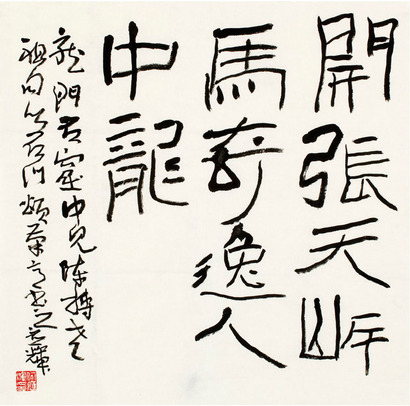 開張天岸
馬奇逸人
中龍
龍門古窟中見陳摶老
祖句以石门頌筆意書之